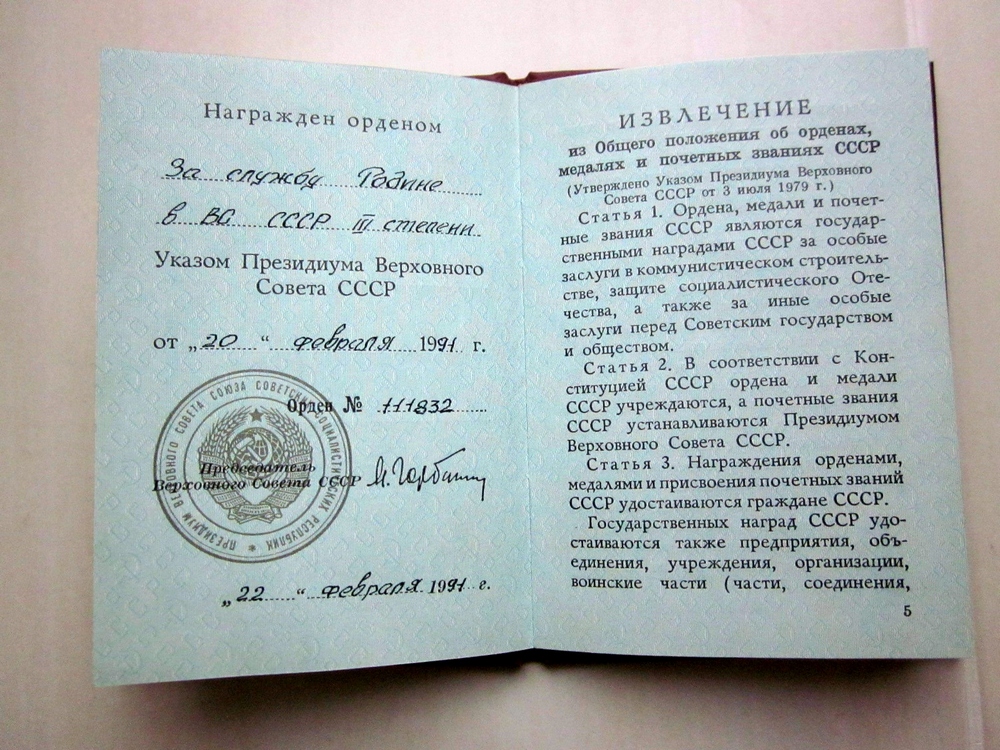 Награжден орденом
За службу Родине
в ВС СССР III степени
Указом Президиума Верховного
Совета СССР
от „20“ февраля 1991 г.
Орден № 111832
Председатель
Верховного Совета СССР М. Горбачев
ПРЕЗИДИУМ ВЕРХОВНОГО СОВЕТА СОЮЗА СОВЕТСКИХ СОЦИАЛИСТИЧЕСКИХ РЕСПУБЛИК *
„22“ февраля 1991 г.
ИЗВЛЕЧЕНИЕ
из Общего положения об орденах,
медалях и почетных званиях СССР
(Утверждено Указом Президиума Верховного
Совета СССР от 3 июля 1979 г.)
Статья 1. Ордена, медали и почет-
ные звания СССР являются государ-
ственными наградами СССР за особые
заслуги в коммунистическом строитель-
стве, защите социалистического Оте-
чества, а также за иные особые
заслуги перед Советским государством
и обществом.
Статья 2. В соответствии с Кон-
ституцией СССР ордена и медали
СССР учреждаются, а почетные звания
СССР устанавливаются Президиумом
Верховного Совета СССР.
Статья 3. Награждения орденами,
медалями и присвоения почетных званий
СССР удостаиваются граждане СССР.
Государственных наград СССР удо-
стаиваются также предприятия, объ-
единения, учреждения, организации,
воинские части (части, соединения,
5